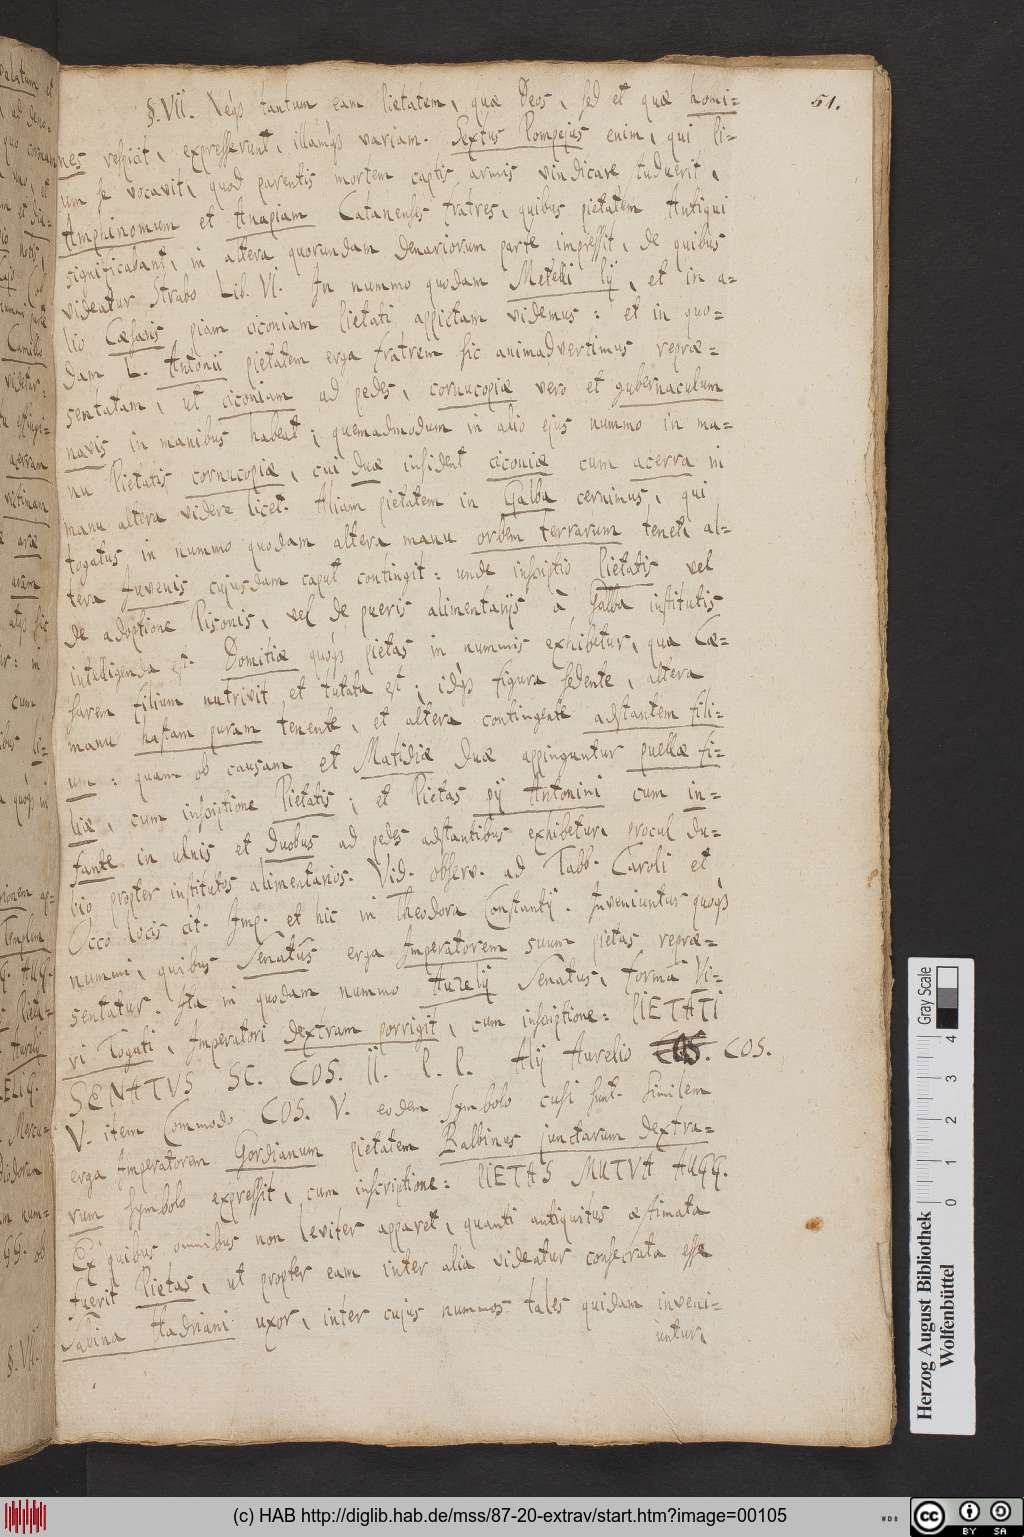 51.
§. VII. Neqз tantum eam Pietatem, quæ Deos, sed et quæ homi=
nes respicit, expresserunt, illamqз variam. Sextus Pompejus enim, qui Pi=
um se vocavit, quod parentis mortem captis armis vindicare studuerit,
Amphinomum et Anapiam Catanenses fratres, quibus pietatem Antiqui
significabant, in altera quorundam denariorum parte impressit, de quibus
videatur Strabo Lib. VI. In nummo quodam Metelli Pij, et in a=
lio Cæsaris piam ciconiam Pietati appictam videmus: et in quo=
dam L. Antonii pietatem erga fratrem sic animadvertimus repræ=
sentatam, ut ciconiam ad pedes, cornucopiæ vero et gubernaculum
navis in manibus habeat; quemadmodum in alio ejus nummo in ma=
nu Pietatis cornucopiæ, cui duæ insident ciconiæ cum acerra in
manu altera videre licet. Aliam pietatem in Galba cernimus, qui
togatus in nummo quodam altera manu orbem terrarum tenet, al=
tera Juvenis cujusdam caput contingit: unde inscriptio Pietatis vel
de adoptione Pisonis, vel de pueris alimentarijs à Galba institutis
intelligenda est. Domitiæ quoqз pietas in nummis exhibetur, qua Cæ=
sarem filium nutrivit et tutata est; idqз figura sedente, altera
manu hastam puram tenente, et altera contingente adstantem fili=
um: quam ob causam et Matidiæ duæ appinguntur puellæ fi=
liæ, cum inscriptione Pietatis; et Pietas pij Antonini cum in=
fante in ulnis et duobus ad pedes adstantibus exhibetur, procul du=
bio propter institutos alimentarios. Vid. observ. ad Tabb. Caroli et
Occo locis cit. Imp. et hic in Theodora Constantij. Inveniuntur quoqз
nummi, quibus Senatus erga Imperatorem suum pietas repræ=
sentatur. Ita in quodam nummo Aurelij Senatus, forma Vi=
ri Togati, Imperatori dextram porrigit, cum inscriptione: PIETATI
SENATVS SC. COS. II. P. P. Alij Aurelio COS. COS.
V. item Commodo COS. V. eodem symbolo cusi sunt. Similem
erga Imperatorem Gordianum pietatem Balbinus junctarum dextra=
rum symbolo expressit, cum inscriptione: PIETAS MUTVA AUGG.
Ex quibus omnibus non leviter apparet, quanti antiquitus æstimata
fuerit Pietas, ut propter eam inter alia videatur consecrata esse
Sabina Hadriani uxor, inter cujus nummos tales quidam inveni=
untur,
(c) HAB http://diglib.hab.de/mss/87-20-extrav/start.htm?image=00105
Herzog August Bibliothek
Wolfenbüttel
Gray Scale
0 1 2 3 4
BY SA